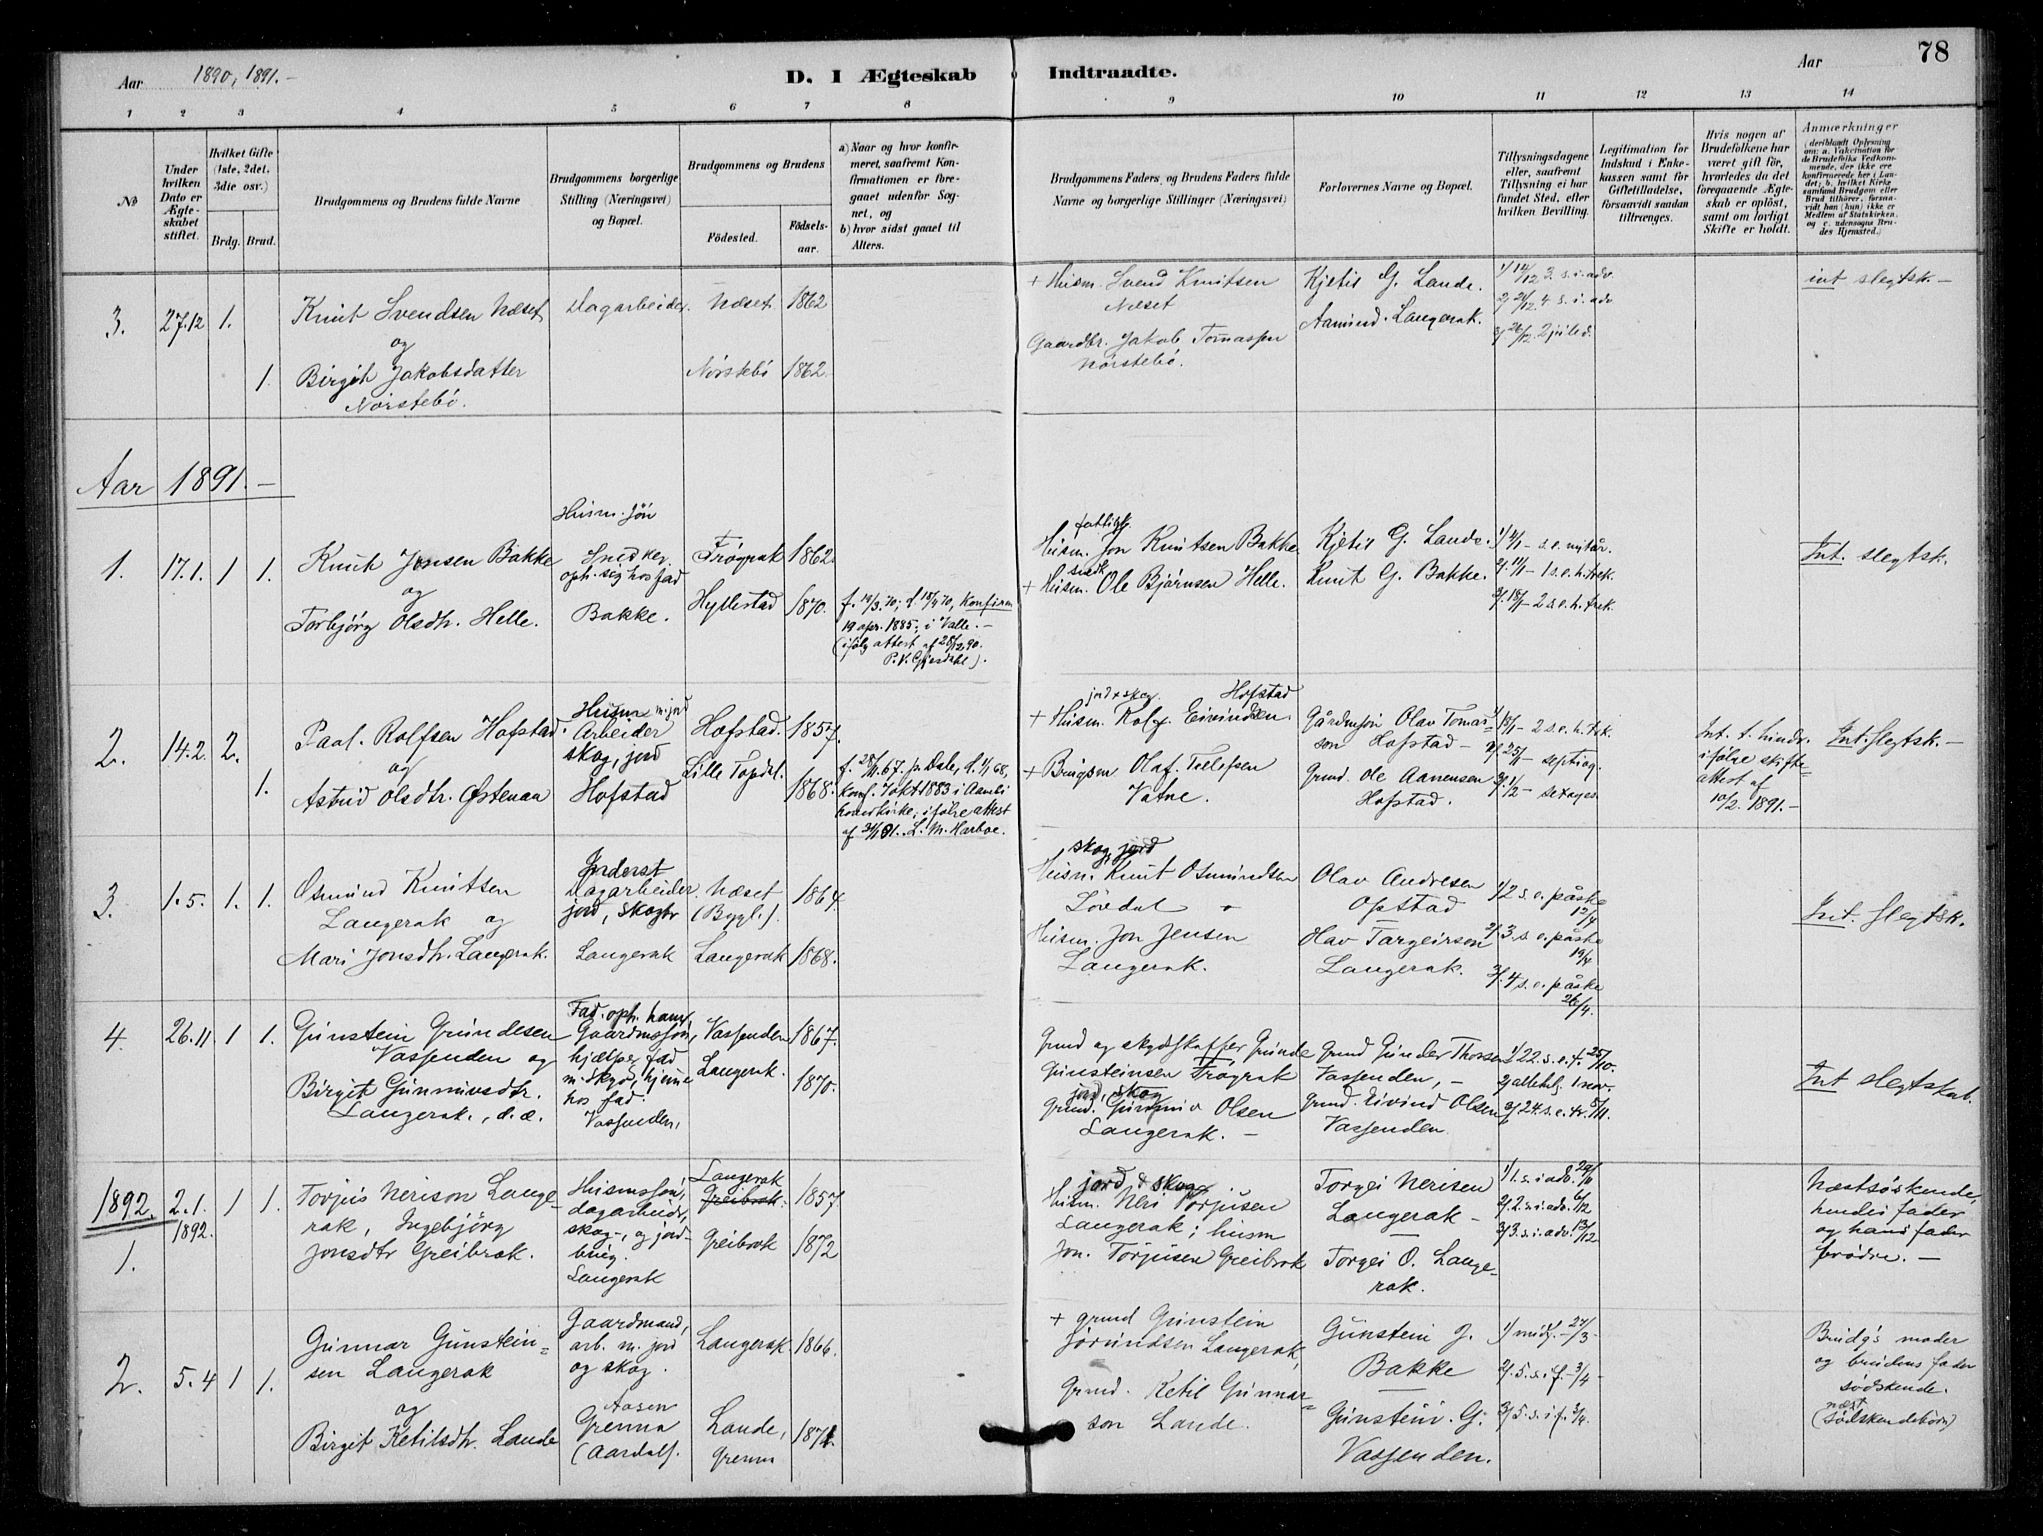 Aar 1890, 1891.-
D. I Ægteskab
Indtraadte.
Aar
78
1 2 3 4 5 6 7 8 9 10 11 12 13 14
No
Under hvilken Dato er Ægteskabet stiftet.
Hvilket Gifte (1ste, 2det, 3die osv.)
Brdg. Brud.
Brudgommens og Brudens fulde Navne
Brudgommens borgerlige Stilling (Næringsvei) og Bopæl.
Brudgommens og Brudens
Fødested.
Fødselsaar.
a) Naar og hvor konfirmeret, saafremt Konfirmationen er foregaaet udenfor Sognet, og
b) hvor sidst gaaet til Alters.
Brudgommens Faders, og Brudens Faders fulde Navne og borgerlige Stillinger (Næringsvei)
Forlovernes Navne og Bopæl.
Tillysningsdagene eller, saafremt Tillysning ei har fundet Sted, efter hvilken Bevilling.
Legitimation for Indskud i Enkekassen samt for Giftetilladelse, forsaavidt saadan tiltrænges.
Hvis nogen af Brudefolkene har været gift før, hvorledes da det foregaaende Ægteskab er opløst, samt om lovligt Skifte er holdt.
Anmærkninger
(deriblandt Oplysning om: a. Vakcination for de Brudefolks Vedkommende, der ikke ere konfirmerede her i Landet; b. hvilket Kirkesamfund Brudgom eller Brud tilhører, forsaavidt han (hun) ikke er Medlem af Statskirken, og c. udensogns Brudes Hjemsted.)
3. 27.12 1.
Knut Svendsen Næset
og
1. Birgit Jakobsdatter
Nørstebø.
Dagarbeider.
Næset 1862
Nørstebø 1862.
+ Husm. Svend Knutsen
Næset
Gaardbr. Jakob Tomassen
Nørstebø.
Kjetil G. Lande.
Aamund Langerak.
1/ 14/12 3. s. i. adv.
2/ 21/12 4 s. i. adv
3/ 26/12 2 juled.
int slegtsk. -
Aar 1891. -
1. 17.1. 1 1.
Knut Jonsen Bakke
og
Torbjørg Olsdtr. Helle.
Husm. søn
Snedker
oph. seg hos fad
Bakke.
Frøyrak 1862.
Hyllestad 1870.
f. 19/3.70; d. 18/4 70, Konfirm
19 apr. 1885, i Valle. -
(ifølg attest af 28/12 90.
P. V. Gjesdahl).
fattigl.
Husm. Jon Knutsen Bakke
snedk
+ Husm. Ole Bjørnsen Helle.
Kjetil G. Lande.
Knut G. Bakke.
1/ 4/1 - s. e. nytår.
2/ 11/1 - 1 s. e. h. trek.
3/ 18/1 - 2 s. e. h. trek.
Int. slegtsk.
2. 14.2. 2.
Paal. Rolfsen Hofstad.
og
1. Astrid Olsdtr. Østenaa
Husm m. jord
Arbeider
skog, jord
Hofstad
Hofstad. 1857.
Lille Topdal. 1868.
f. 28/11.67. pr Dale, d. 1/1 68,
konf. 7 okt 1883 i Aamli
hovedkirke; ifølge attest
af 24/1 91. L. M. Harboe.
jord + skog. Hofstad
+ Husm. Rolf. Eivindsen.
+ Brugsm Olaf. Tellefsen
Vatne.
Gårdmsøn Olav Tomasson
Hofstad -
Grmd. Ole Aanensen
Hofstad.
1/ 18/1 - 2 s. e. h. trk.
2/ 25/1 - septuag.
3/ 1/2 - sexages.
Int. t. hindr.
ifølge skifteattest
af
10/2. 1891. -
Int. slegtsk. -
3. 1.5. 1. 1.
Osmund Knutsen
Langerak og
Mari Jonsdtr. Langerak.
Inderst
Dagarbeider
jord, skogbr
Langerak
Næset
(Bygl.). 1864.
Langerak 1868.
skog, jord
Husm. Knut Osmundsen
Løvdal
Husm. Jon Jensen
Langerak.
Olav Andresen
Opstad
Olav Targeirson
Langerak.
1/ 2 s. e. påske
12/4
2/ 3. s. e. påske
19/4
3/. 4 s. e. påske
26/4.
Int. slegtsk.
4. 26.11. 1 1.
Gunstein Grundesen
Vassenden og
Birgit Gunnuvsdtr.
Langerak., d. æ.
Fad. oph. ham,
Gaardmssøn,
hjælper fad
m. skyd, hjeme
hos fad
Vassenden,
Vassenden 1867.
Langerak. 1870.
Grmd og skydskaffer Grunde
Gunsteinsen Frøyrak
jord, skog
Grmd. Gunnuv Olsen
Langerak. -
Grmd Gunder Thorsen
Vassenden, -
Grmd. Eivind Olsen
Vassenden
1/ 22. s. e. tr. 25/10.
2/ allehelg. 1 nov.
3/ 24. s. e. tr. 5/11.
Int slegtskab.
1892. 2.1. 1892. 1 1.
1.
Torjus Nerison Langerak,
Ingebjørg
Jonsdtr Greibrok.
Husmssøn,
dagarbeider,
skog-, og jordbrug.
Langerak
Langerak
Greibrok. 1857
Greibrok 1872
jord & skog
Husm. Neri Torjusen
Langerak; husm
Jon. Torjusen Greibrok
Torgei Nerisen
Langerak -
Torgei O. Langerak.
1/ 1. s. i. adv. 29/11
2/ 2. s. i. adv. 6/12
3/ 3. s. i. adv. 13/12
Næstsøskende,
hendes fader
og hans fader
brødre. -
2. 5.4 1 1.
Gunnar Gunsteinsen
Langerak
og
Birgit Ketilsdtr. Lande
Gaardmand,
arb. m. jord
og skog.
Aasen
Grenna
(Aardals).
Langerak. 1866.
Lande,
Grenna 1871
+ grmd Gunstein
Jørundsen Langerak,
Grmd. Ketil Gunnarson
Lande.
Gunstein J.
Bakke
Gunstein. G.
Vassenden.
1/ midf. - 27/3 -
2/. 5. s. i f. - 3/4 -
3/ 5. s. i f. 3/4.
Brudg's moder
og brudens fader
sødskende.
næst
(sødskendebørn)